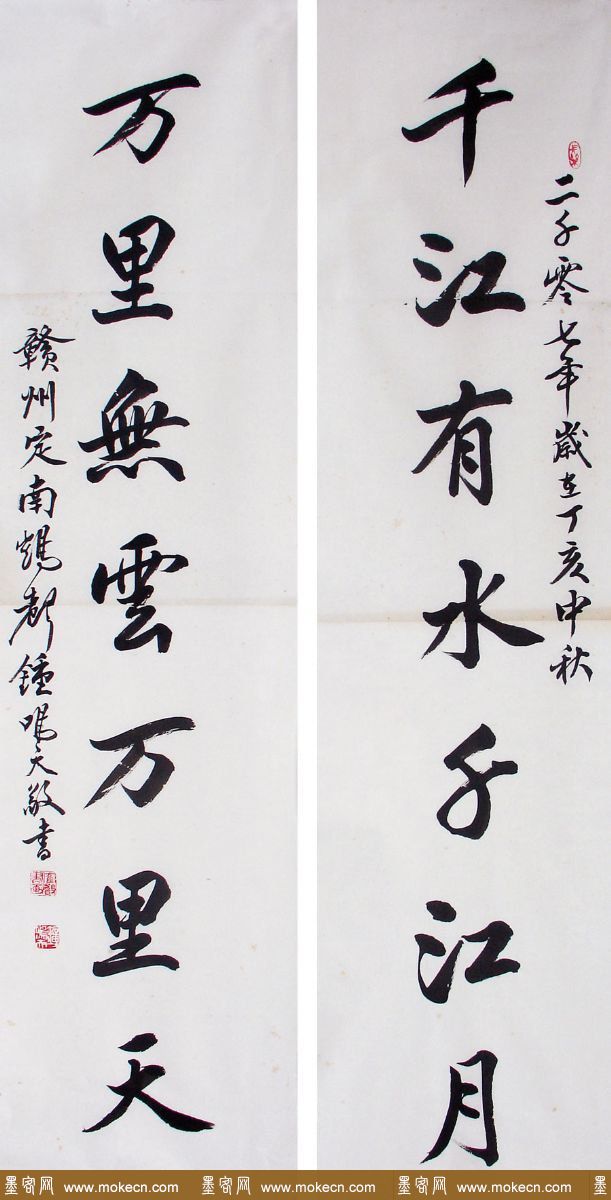 千江有水千江月
二千零七年歲在丁亥中秋
万里無雲万里天
赣州定南鹪聲鍾鳴天敬書
墨客网 www.mokecn.com 墨客网 www.mokecn.com 墨客网 www.mokecn.com 墨客网